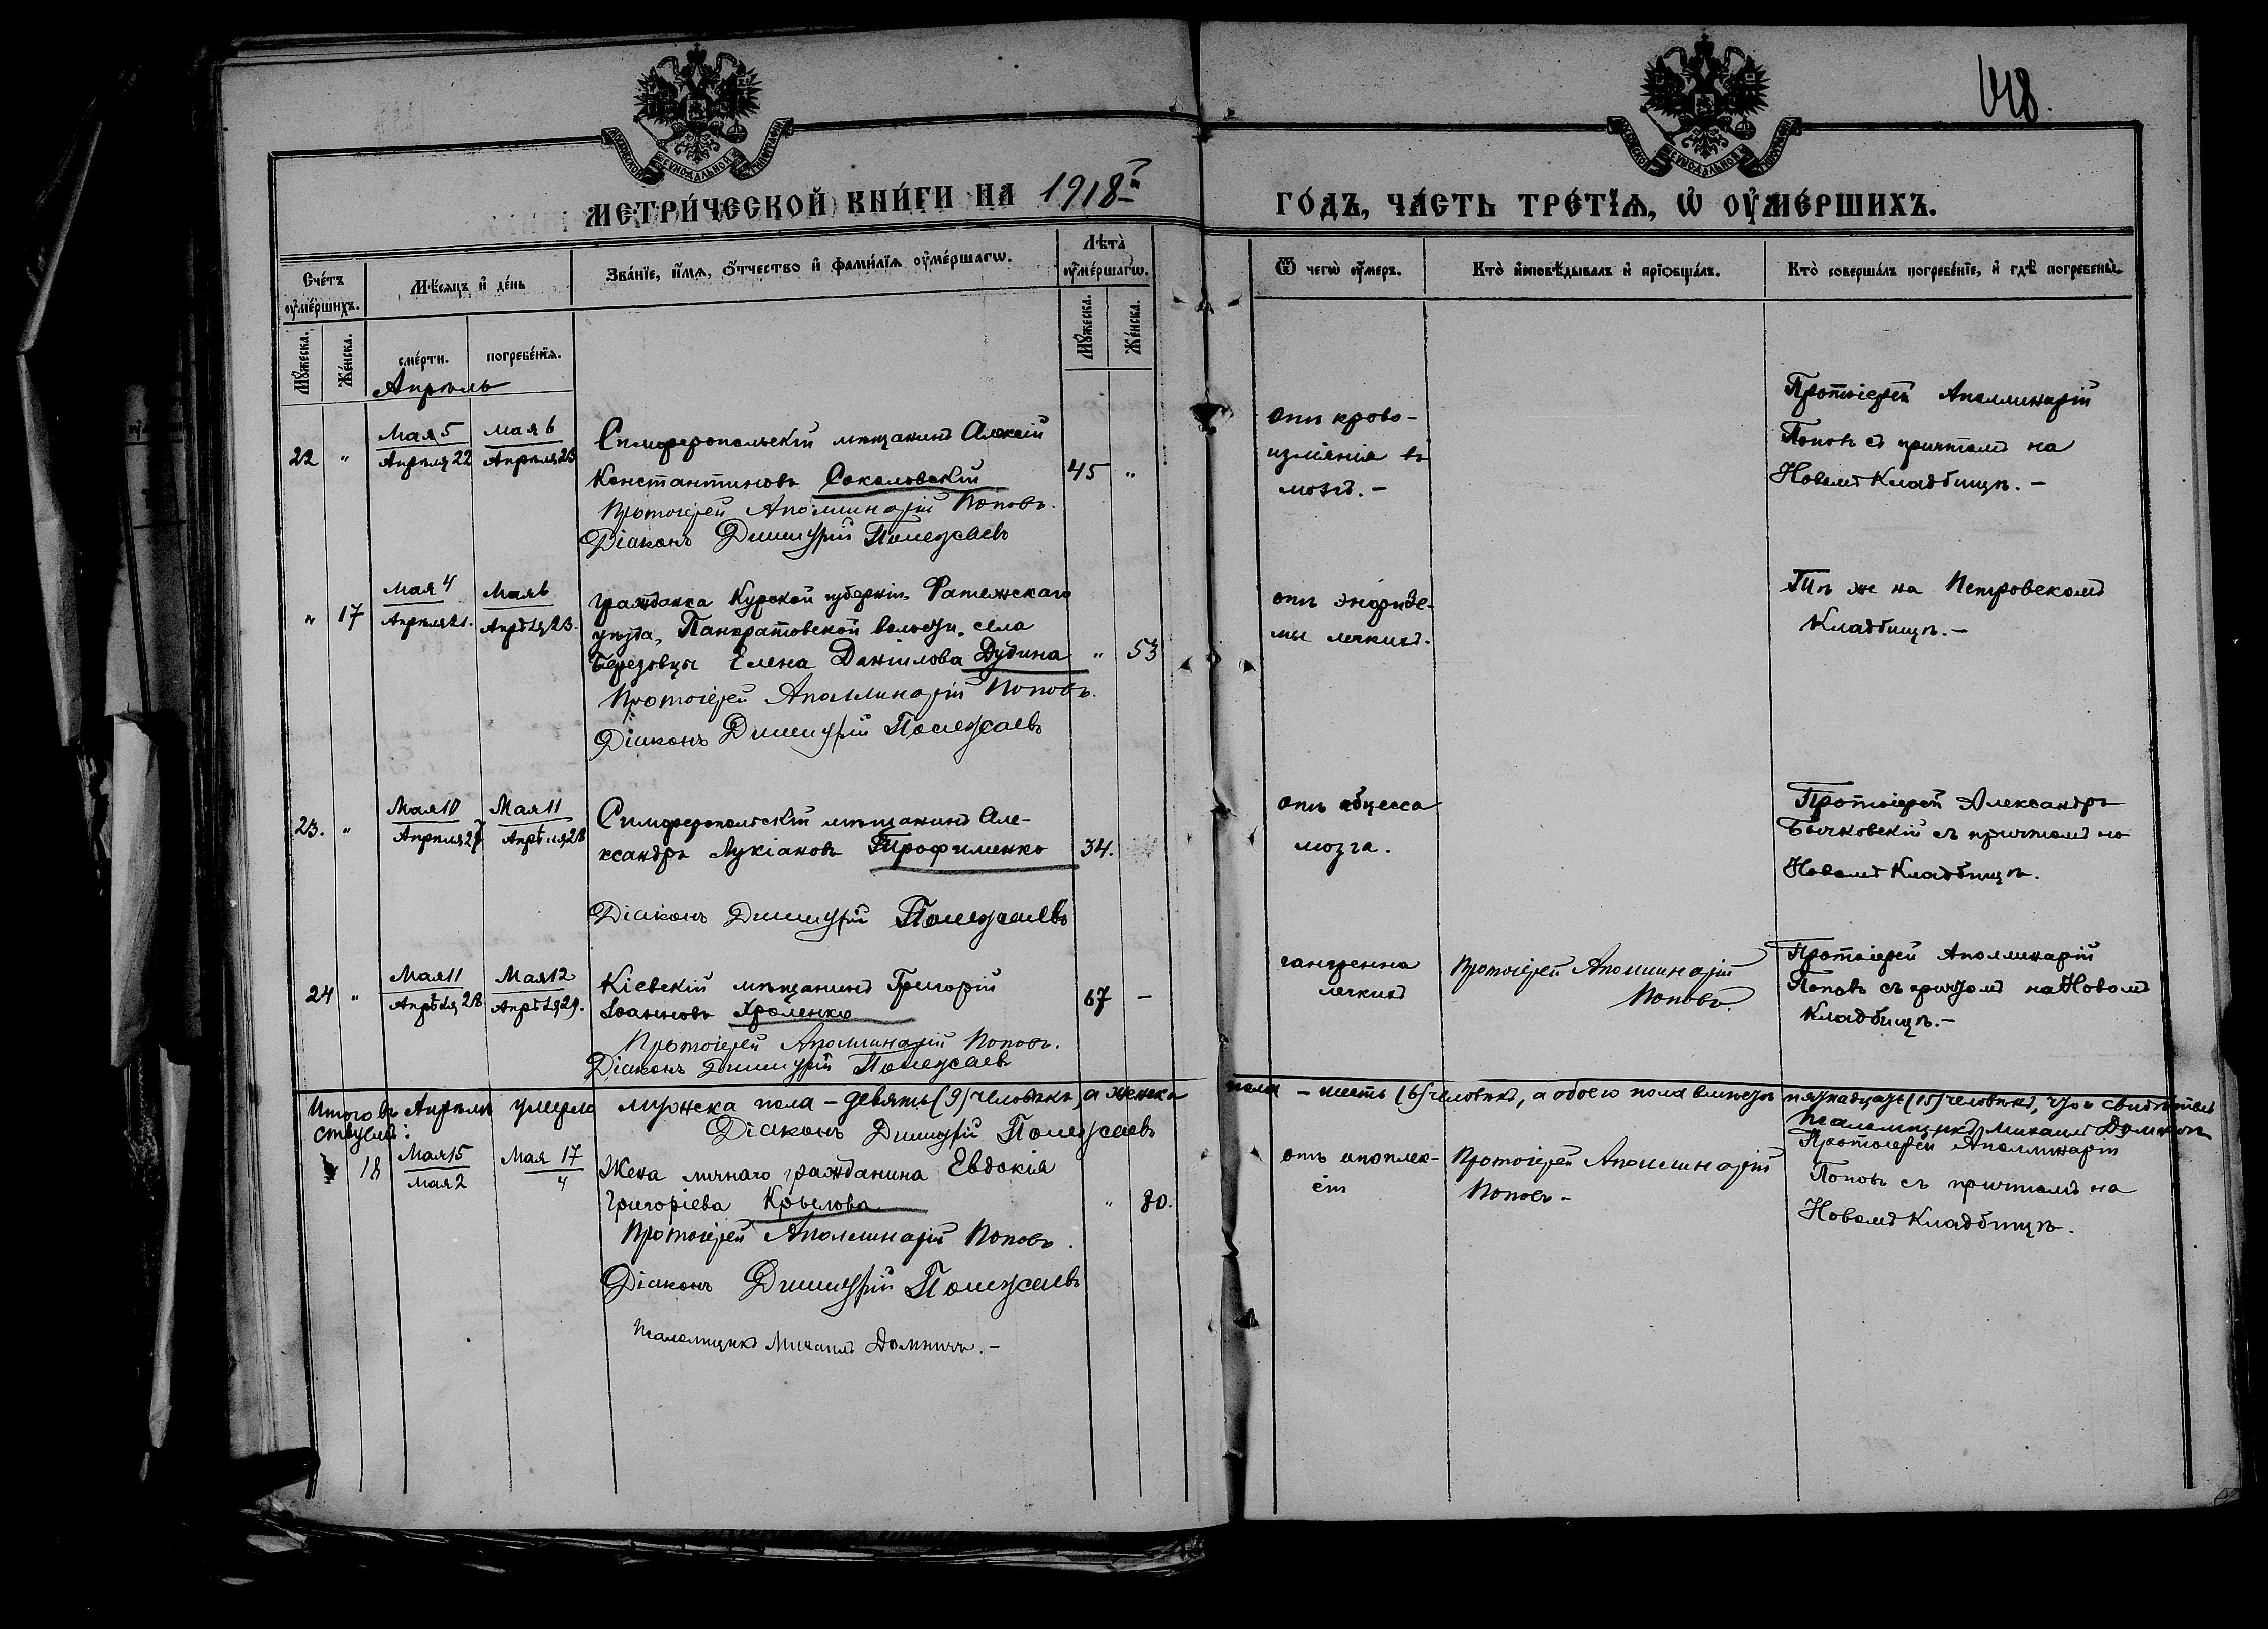 148.
МОСКОВСКОЙ СѴНОДАЛЬНОЙ ТИПОГРАФІИ
МОСКОВСКОЙ СѴНОДАЛЬНОЙ ТИПОГРАФІИ
МЕТРИ́ЧЕСКОЙ КНИ́ГИ НА 1918й
ГО́ДЪ, ЧА́СТЬ ТРЕ́ТІѦ, Ѡ҆ ОУ҆МЕ́РШИХЪ.
Сче́тъ оу҆ме́ршихъ.
Мѣ́сѧцъ и҆ де́нь
Зва́нїе, и҆́мѧ, ѻ҆́тчество и҆ фами́лїѧ оу҆ме́ршагѡ.
Лѣта̀ оу҆ме́ршагѡ.
Мꙋ́жеска.
Же́нска.
сме́рти.
погребе́нїѧ.
Мꙋ́жеска.
Же́нска.
Ѿ чегѡ̀ оу҆́меръ.
Кто̀ и҆сповѣ́дывалъ и҆ прїѡбща́лъ.
Кто̀ соверша́лъ погребе́нїе, и҆ гдѣ̀ погребены̀.
Апрѣль
22 " Мая 5 Мая 6
Апрѣля 22 Апрѣля 23
Симферопольскій мѣщанинъ Алексій
Константиновъ Соколовскій 45 "
Протоіерей Аполлинарій Поповъ.
Діаконъ Димитрій Полежаевъ
отъ крово-
изліянія въ
мозгъ.-
Протоіерей Аполлинарій
Поповъ съ причтомъ на
Новомъ Кладбищѣ.-
" 17 Мая 4 Мая 6
Апрѣля 21. Апрѣля 23.
Гражданка Курской губерніи, Фатежскаго
уѣзда, Панкратовской волости, села
Березовцы Елена Даніилова Дудина " 53
Протоіерей Аполлинарій Поповъ.
Діаконъ Димитрій Полежаевъ
отъ эмфизе-
мы легкихъ.
Тѣ же на Петровскомъ
Кладбищѣ.-
23. " Мая 10 Мая 11
Апрѣля 27 Апрѣля 28
Симферопольскій мѣщанинъ Але-
ксандръ Лукіановъ Трофименко 34.
Діаконъ Димитрій Полежаевъ
отъ абцесса
мозга.
Протоіерей Александръ
Бычковскій съ причтомъ на
Новомъ Кладбищѣ.
24 " Мая 11 Мая 12
Апрѣля 28 Апрѣля 29.
Кіевскій мѣщанинъ Григорій
Іоанновъ Хроленко 67 -
Протоіерей Аполлинарій Поповъ.
Діаконъ Димитрій Полежаевъ
гангренна
легкихъ
Протоіерей Аполлинарій
Поповъ.
Протоіерей Аполлинарій
Поповъ съ причтомъ на Новомъ
Кладбищѣ.-
Итого въ Апрѣлѣ умерло мужска пола - девять (9) человѣкъ, а женска пола - шесть (6) человѣкъ, а обоего пола вмѣстѣ пятнадцать (15) человѣкъ, что и свидѣтель
ствуемъ:
Діаконъ Димитрій Полежаевъ
Псаломщикъ Михаилъ
18 Мая 15 Мая 17
Мая 2 4
Жена личнаго гражданина Евдокія
Григоріева Крылова " 80.
Протоіерей Аполлинарій Поповъ.
Діаконъ Димитрій Полежаевъ
Псаломщикъ Михаилъ
отъ апоплек-
сіи
Протоіерей Аполлинарій
Поповъ-
Протоіерей Аполлинарій
Поповъ съ причтомъ на
Новомъ Кладбищѣ.